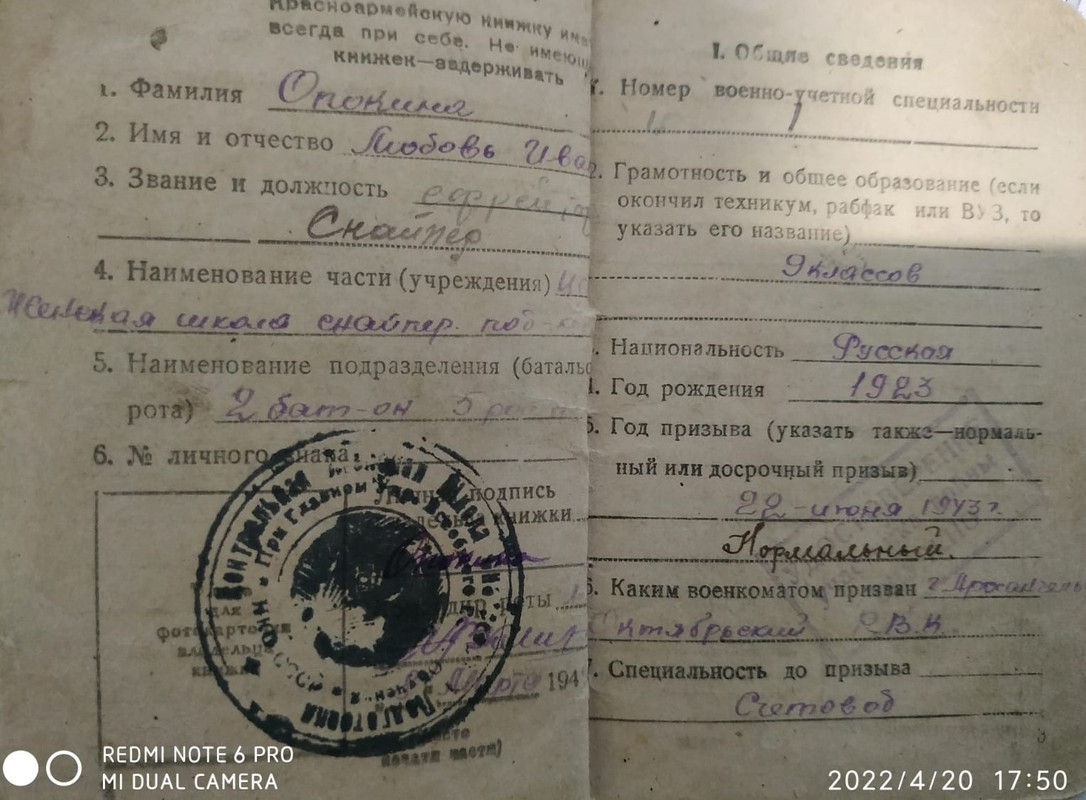 Красноармейскую книжку име
всегда при себе. Не имеющ
книжек—задерживать
1. Фамилия Опокина
2. Имя и отчество Любовь Ива
3. Звание и должность ефрейтор
Снайпер
4. Наименование части (учреждения)
Женская школа снайпер. под-
5. Наименование подразделения (батальо
рота) 2 бат-он 5 рота
6. № личного знака
подпись
книжки
роты
для
фотокарточки
владельца
книжки
марта 194
печати части)
Центральная Женская Школа
Подготовки
При Главном Упр. Всеобщего
обучения
I. Общие сведения
1. Номер военно-учетной специальности
1
2. Грамотность и общее образование (если
окончил техникум, рабфак или ВУЗ, то
указать его название)
9 классов
Национальность Русская
Год рождения 1923
5. Год призыва (указать также—нормаль-
ный или досрочный призыв)
22-июня 1943 г.
Нормальный.
6. Каким военкоматом призван г. Архангель
Октябрьский Р.В.К.
7. Специальность до призыва
Счетовод
3
REDMI NOTE 6 PRO
MI DUAL CAMERA
2022/4/20 17:50